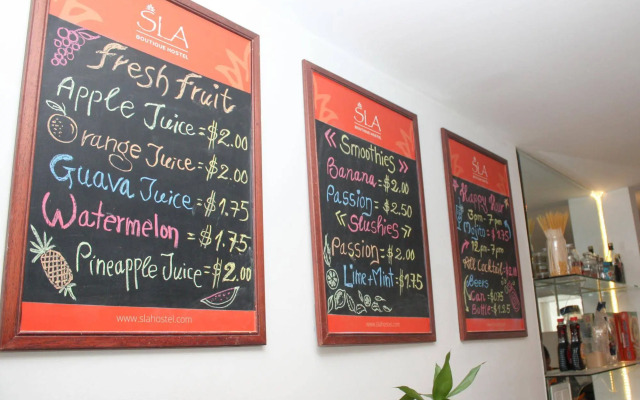 SLA
BOUTIQUE HOSTEL
Fresh Fruit
Apple Juice = $2.00
Orange Juice = $2.00
Guava Juice = $1.75
Watermelon = $1.75
Pineapple Juice = $2.00
www.slahostel.com
SLA
BOUTIQUE HOSTEL
« Smoothies »
Banana = $2.00
Passion = $2.50
« Slushies »
Passion = $2.00
Lime + Mint = $1.75
www.slahostel.com
SLA
Happy Hour
3pm-7pm
Mojito = $1.75
7pm
All Cocktail = $2.00
Beers
Can
Bottle = $1.25